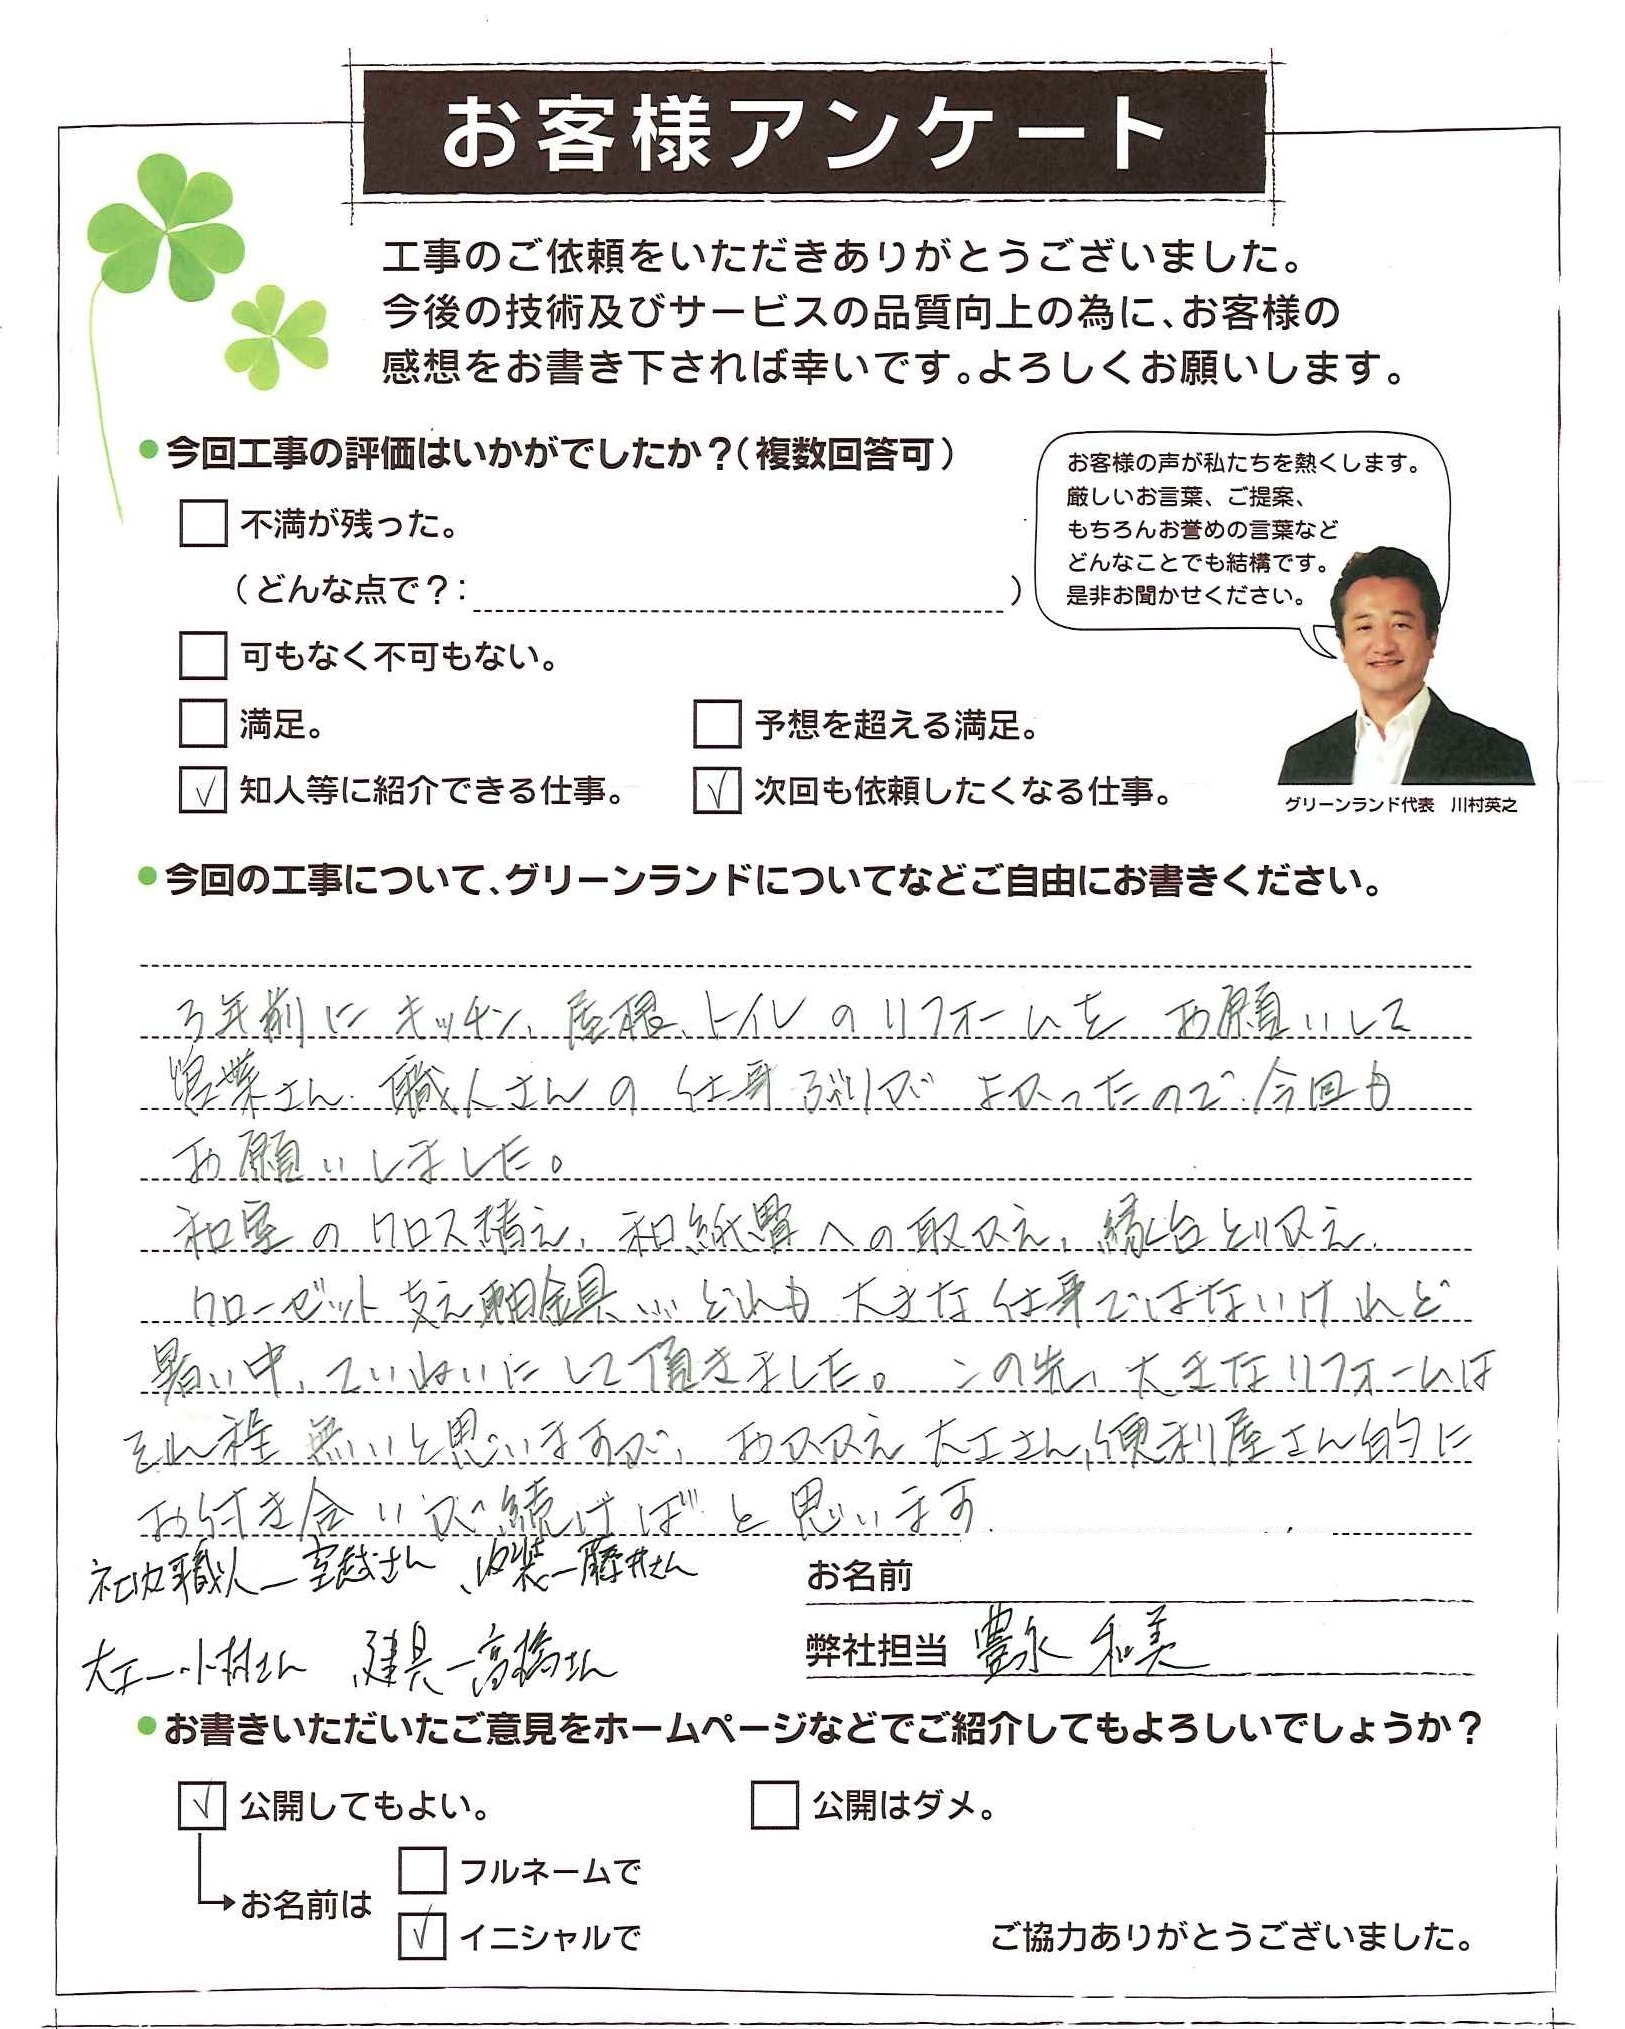 お客様アンケート
工事のご依頼をいただきありがとうございました。
今後の技術及びサービスの品質向上の為に、お客様の
感想をお書き下されば幸いです。よろしくお願いします。
●今回工事の評価はいかがでしたか？（複数回答可）
お客様の声が私たちを熱くします。
厳しいお言葉、ご提案、
もちろんお誉めの言葉など
どんなことでも結構です。
是非お聞かせください。
不満が残った。
（どんな点で？：　）
可もなく不可もない。
満足。　予想を超える満足。
✓ 知人等に紹介できる仕事。　✓ 次回も依頼したくなる仕事。
グリーンランド代表　川村英之
●今回の工事について、グリーンランドについてなどご自由にお書きください。
3年前にキッチン、屋根、トイレのリフォームをお願いして
営業さん、職人さんの仕事ぶりがよかったので今回も
お願いしました。
和室のクロス替え、和紙畳への取りかえ、縁台とりかえ、
クローゼット支え軸金具…どれも大きな仕事ではないけれど
暑い中、ていねいにして頂きました。この先、大きなリフォームは
それ程無いと思いますが、おかかえ大工さん、便利屋さん的に
お付き合いが続けばと思います
社内職人ー宮越さん、内装ー藤井さん
大工ー小村さん　建具ー高橋さん
お名前
弊社担当 豊永 和美
●お書きいただいたご意見をホームページなどでご紹介してもよろしいでしょうか？
✓ 公開してもよい。　公開はダメ。
フルネームで
お名前は
✓ イニシャルで
ご協力ありがとうございました。